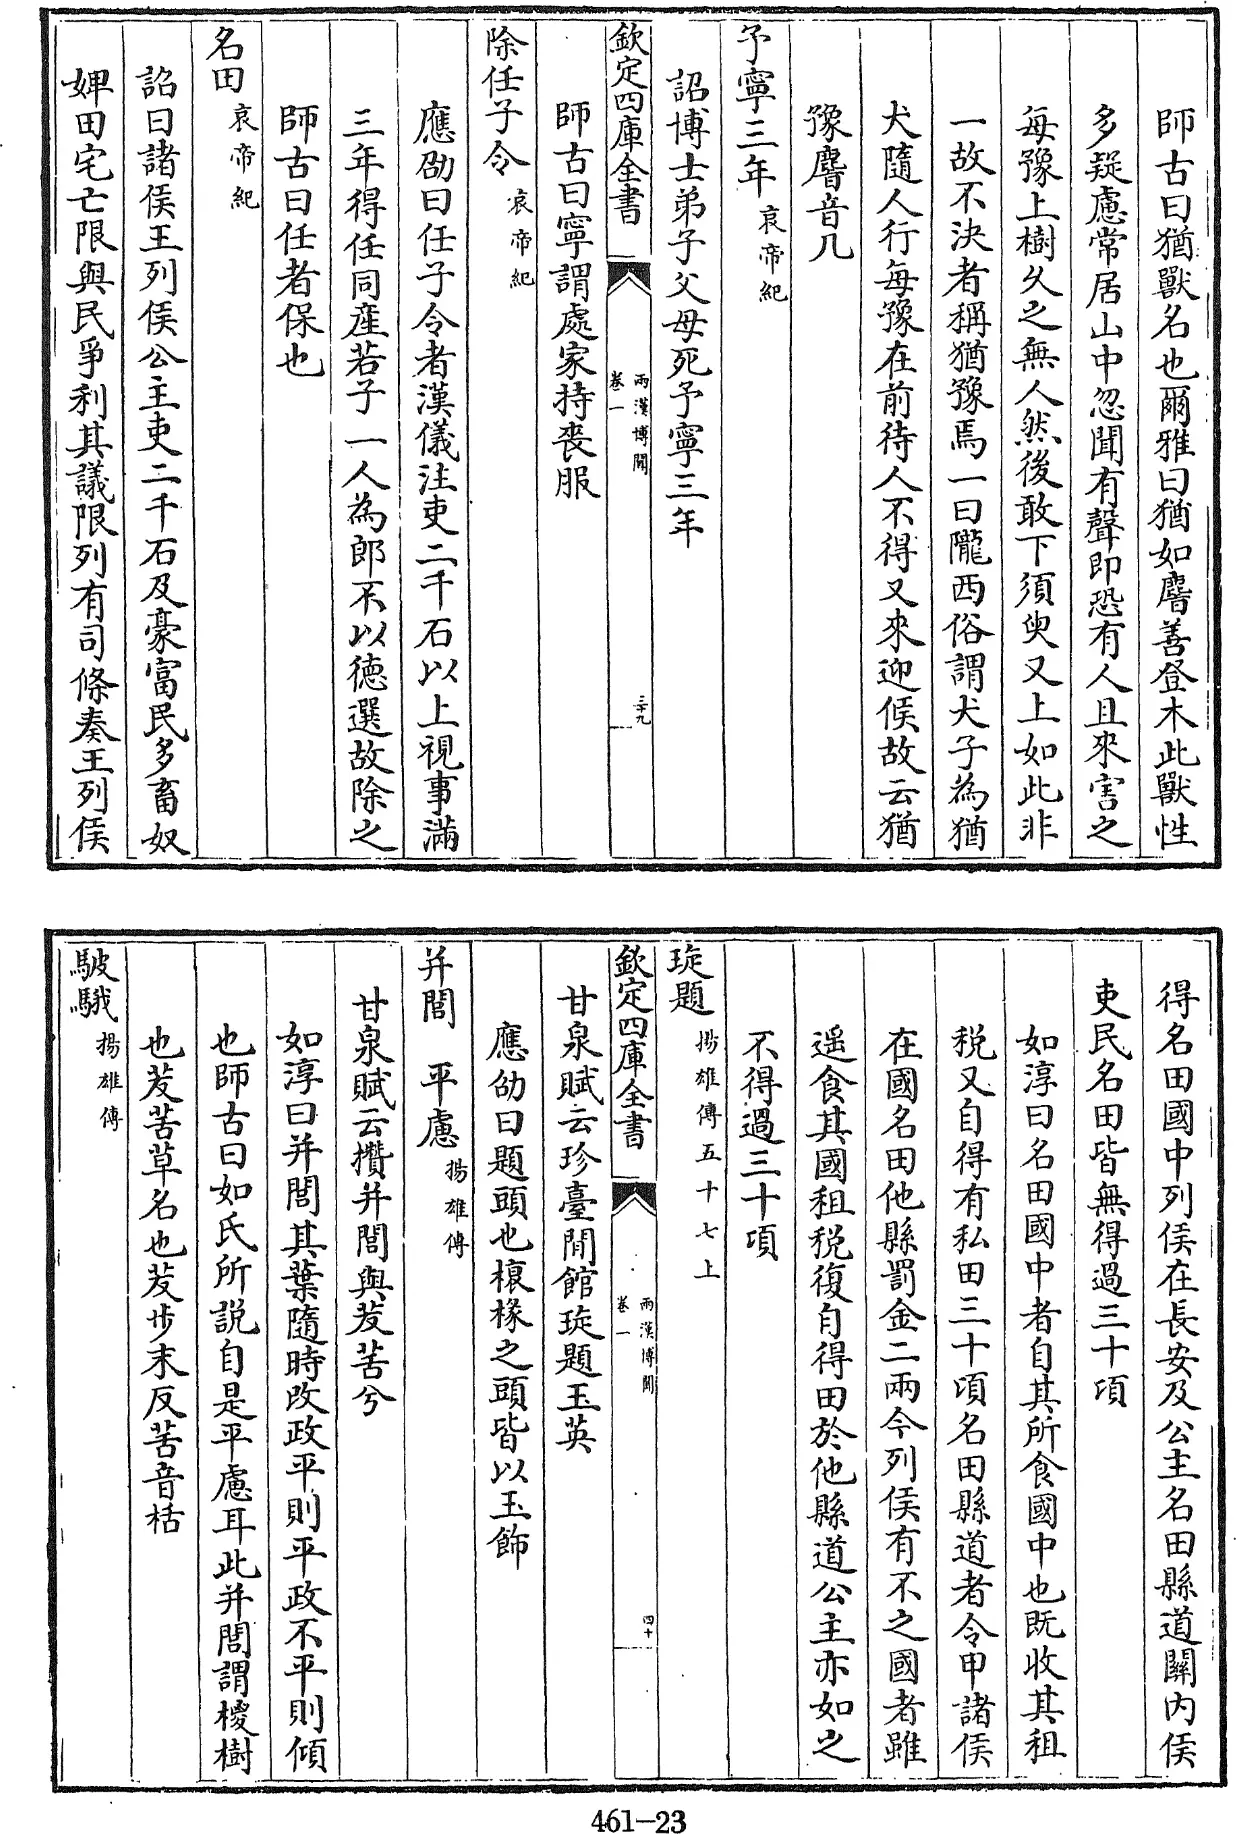 師古曰猶獸名也爾雅曰猶如麐善登木此獸性
多疑慮常居山中忽聞有聲即恐有人且來害之
每豫上樹久之無人然後敢下須臾又上如此非
一故不決者稱猶豫焉一曰隴西俗謂犬子為猶
犬隨人行每豫在前待人不得又來迎候故云猶
豫麐音几
予寧三年 哀帝紀
詔博士弟子父母死予寧三年
欽定四庫全書 兩漢博聞 卷一 三十九
師古曰寧謂處家持喪服
除任子令 哀帝紀
應劭曰任子令者漢儀注吏二千石以上視事滿
三年得任同產若子一人為郎不以德選故除之
師古曰任者保也
名田 哀帝紀
詔曰諸侯王列侯公主吏二千石及豪富民多畜奴
婢田宅亡限與民爭利其議限列有司條奏王列侯
得名田國中列侯在長安及公主名田縣道關内侯
吏民名田皆無得過三十頃
如淳曰名田國中者自其所食國中也既收其租
税又自得有私田三十頃名田縣道者令甲諸侯
在國名田他縣罰金二兩今列侯有不之國者雖
遥食其國租税復自得田於他縣道公主亦如之
不得過三十頃
琁題 揚雄傳五十七上
欽定四庫全書 兩漢博聞 卷一 四十
甘泉賦云珍臺閒館琁題玉英
應劭曰題頭也榱椽之頭皆以玉飾
并閭 平慮 揚雄傳
甘泉賦云攢并閭與茇苦兮
如淳曰并閭其葉隨時改政平則平政不平則傾
也師古曰如氏所説自是平慮耳此并閭謂椶樹
也茇苦草名也茇步末反苦音栝
駊騀 揚雄傳
461-23